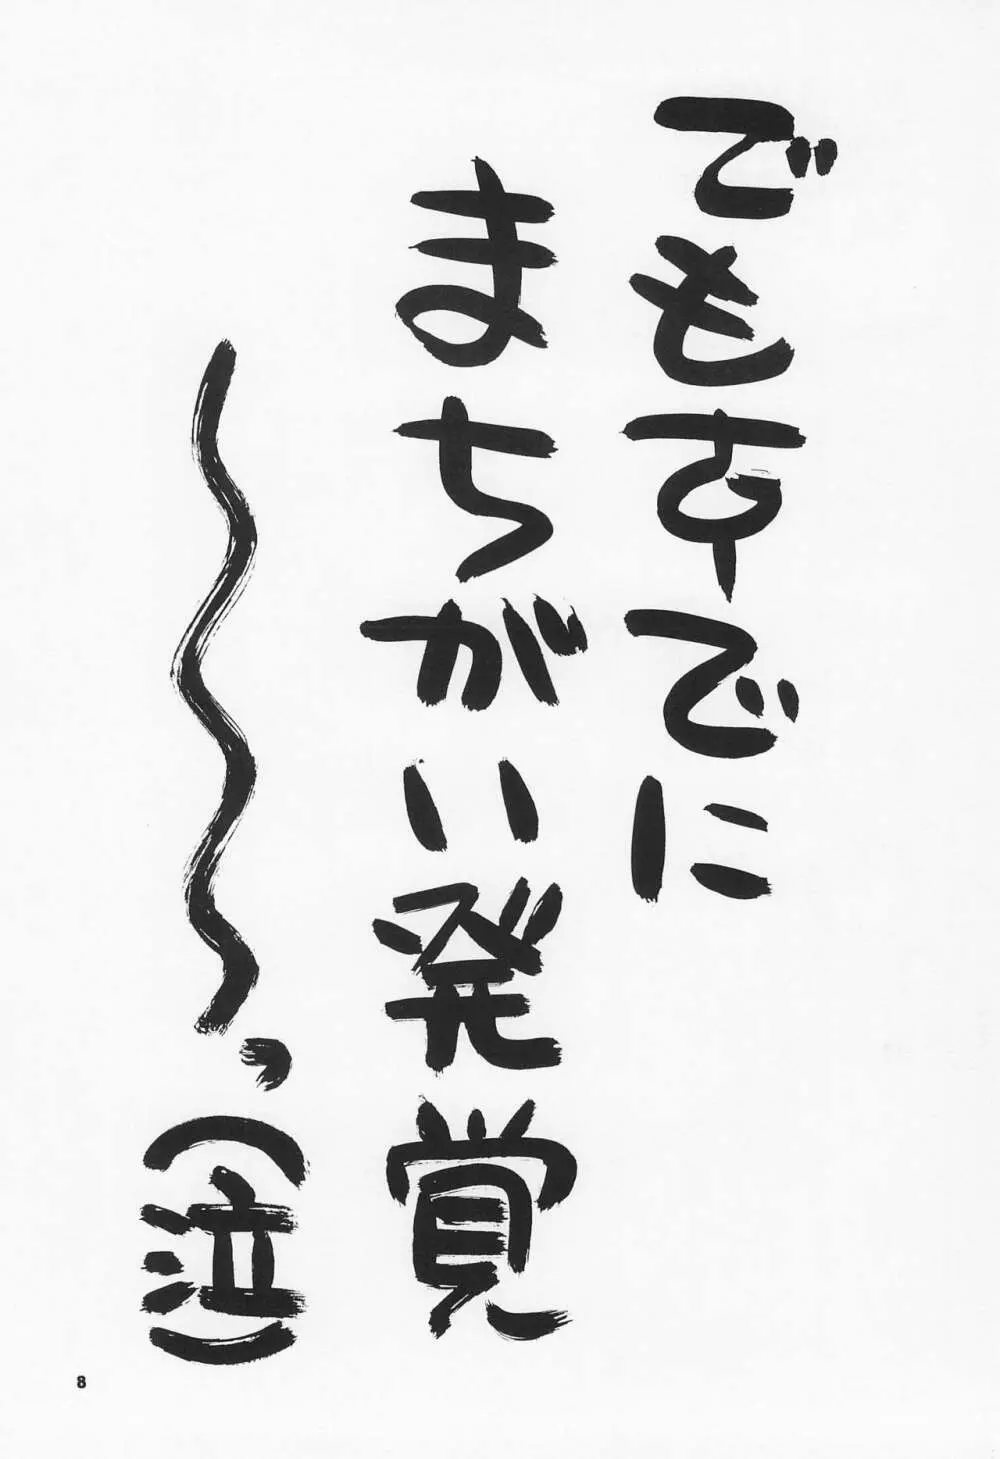 でもすでに
まちがい発覚
〜〜っ(泣)
8